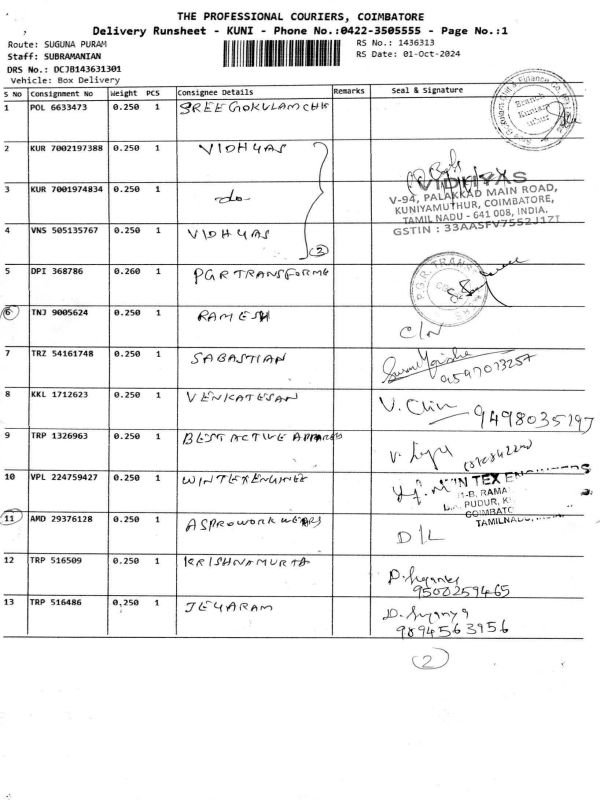 THE PROFESSIONAL COURIERS, COIMBATORE
Delivery Runsheet - KUNI - Phone No.:0422-3505555 - Page No.:1
Route: SUGUNA PURAM RS No.: 1436313
Staff: SUBRAMANIAN RS Date: 01-Oct-2024
DRS No.: DCJB143631301
Vehicle: Box Delivery
S No Consignment No Weight PCS Consignee Details Remarks Seal & Signature
1 POL 6633473 0.250 1 SREE GOKULAM CHK
Branch
2 KUR 7002197388 0.250 1 VIDHYAS
VIDHYAS
3 KUR 7001974834 0.250 1 do
V-94, PALAKKAD MAIN ROAD,
KUNIYAMUTHUR, COIMBATORE,
TAMIL NADU - 641 008, INDIA.
4 VNS 505135767 0.250 1 VIDHYAS
GSTIN : 33AASFV7552J1ZT
2
5 DPI 368786 0.260 1 PGR TRANSFORME
P.G.R. TRANS
6 TNJ 9005624 0.250 1 RAMESH
C/N
7 TRZ 54161748 0.250 1 SABASTIAN
9597073257
8 KKL 1712623 0.250 1 VENKATESAN
9498035197
9 TRP 1326963 0.250 1 BEST ACTIVE APPARES
10 VPL 224759427 0.250 1 WINTEX ENGINEE
WIN TEX ENGINEERS
11 AMD 29376128 0.250 1 ASPROWORK WEARS
PUDUR,
COIMBATO
TAMILNADU,
D/L
12 TRP 516509 0.250 1 KRISHNAMURTA
9500259465
13 TRP 516486 0.250 1 JEYARAM
9894563956
2